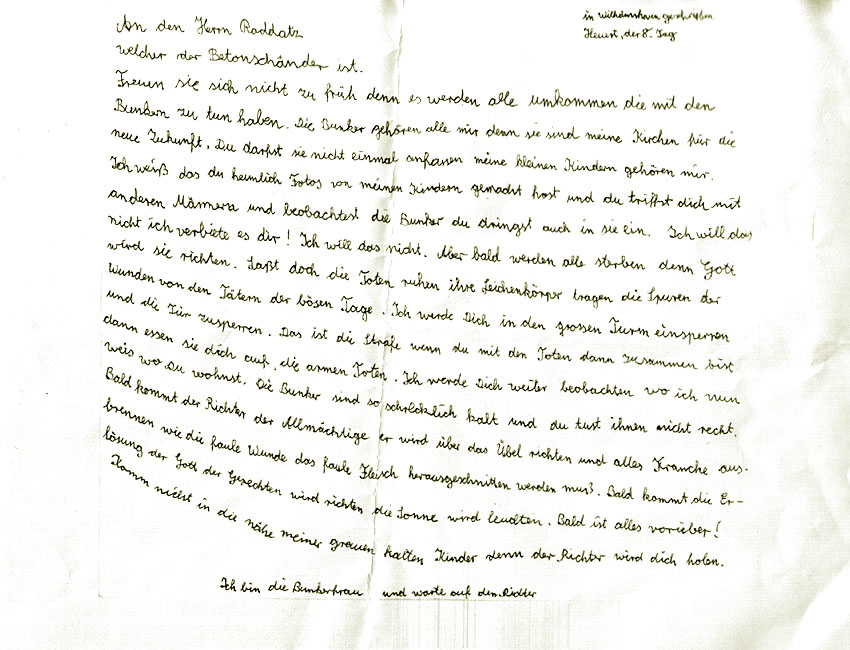 in Wilhelmshaven geschrieben
Heuert, der 8. Tag
An den Herrn Raddatz
welcher der Betonschänder ist.
Freuen sie sich nicht zu früh denn es werden alle umkommen die mit den
Bunkern zu tun haben. Die Bunker gehören alle mir denn sie sind meine Kirchen für die
neue Zukunft. Du darfst sie nicht einmal anfassen meine kleinen Kindern gehören mir.
Ich weiß das du heimlich Fotos von meinen Kindern gemacht hast und du triffst dich mit
anderen Männern und beobachtest die Bunker du dringst auch in sie ein. Ich will das
nicht ich verbiete es dir! Ich will das nicht. Aber bald werden alle sterben denn Gott
wird sie richten. Laßt doch die Toten ruhen ihre Leichenkörper tragen die Spuren der
Wunden von den Tätern der bösen Tage. Ich werde Dich in den grossen Turm einsperren
und die Tür zusperren. Das ist die Strafe wenn du mit den Toten dann zusammen bist
dann essen sie dich auf, die armen Toten. Ich werde Dich weiter beobachten wo ich nun
weis wo Du wohnst. Die Bunker sind so schrecklich kalt und du tust ihnen nicht recht.
Bald kommt der Richter der Allmächtige er wird über das Übel richten und alles Kranche aus-
brennen wie die faule Wunde das faule Fleisch herausgeschnitten werden muß. Bald kommt die Er-
lösung der Gott der Gerechten wird richten die Sonne wird leuchten. Bald ist alles vorüber!
Komm nicht in die nähe meiner grauen kalten Kinder denn der Richter wird dich holen.
Ich bin die Bunkerfrau und warte auf den Richter